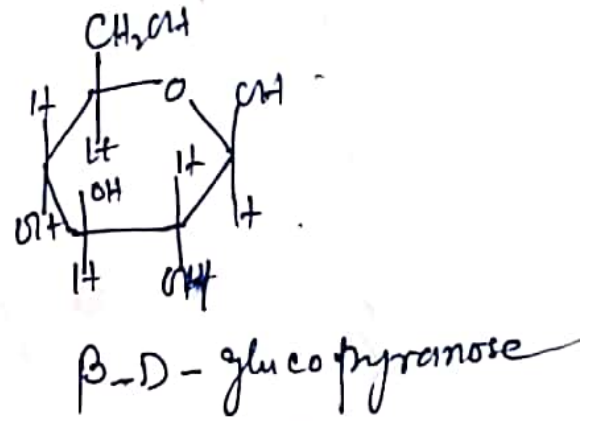 CH₂OH
H O OH
H H
OH
OH H
H OH
β-D-glucopyranose